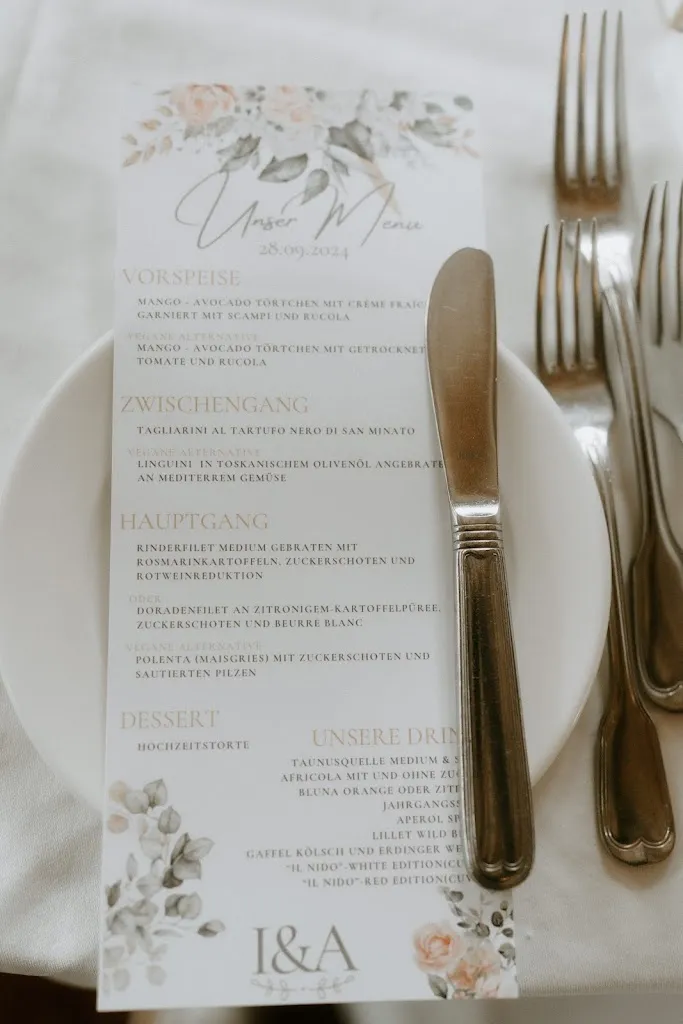 Unser Menü
28.09.2024
VORSPEISE
MANGO - AVOCADO TÖRTCHEN MIT CRÈME FRAÎC
GARNIERT MIT SCAMPI UND RUCOLA
VEGANE ALTERNATIVE
MANGO - AVOCADO TÖRTCHEN MIT GETROCKNET
TOMATE UND RUCOLA
ZWISCHENGANG
TAGLIARINI AL TARTUFO NERO DI SAN MINATO
VEGANE ALTERNATIVE
LINGUINI IN TOSKANISCHEM OLIVENÖL ANGEBRATE
AN MEDITERREM GEMÜSE
HAUPTGANG
RINDERFILET MEDIUM GEBRATEN MIT
ROSMARINKARTOFFELN, ZUCKERSCHOTEN UND
ROTWEINREDUKTION
oder
DORADENFILET AN ZITRONIGEM-KARTOFFELPÜREE,
ZUCKERSCHOTEN UND BEURRE BLANC
VEGANE ALTERNATIVE
POLENTA (MAISGRIES) MIT ZUCKERSCHOTEN UND
SAUTIERTEN PILZEN
DESSERT
HOCHZEITSTORTE
UNSERE DRIN
TAUNUSQUELLE MEDIUM & S
AFRICOLA MIT UND OHNE ZU
BLUNA ORANGE ODER ZIT
JAHRGANGSS
APEROL SP
LILLET WILD B
GAFFEL KÖLSCH UND ERDINGER WE
"IL NIDO"-WHITE EDITIONCUV
"IL NIDO"-RED EDITIONCUV
I&A